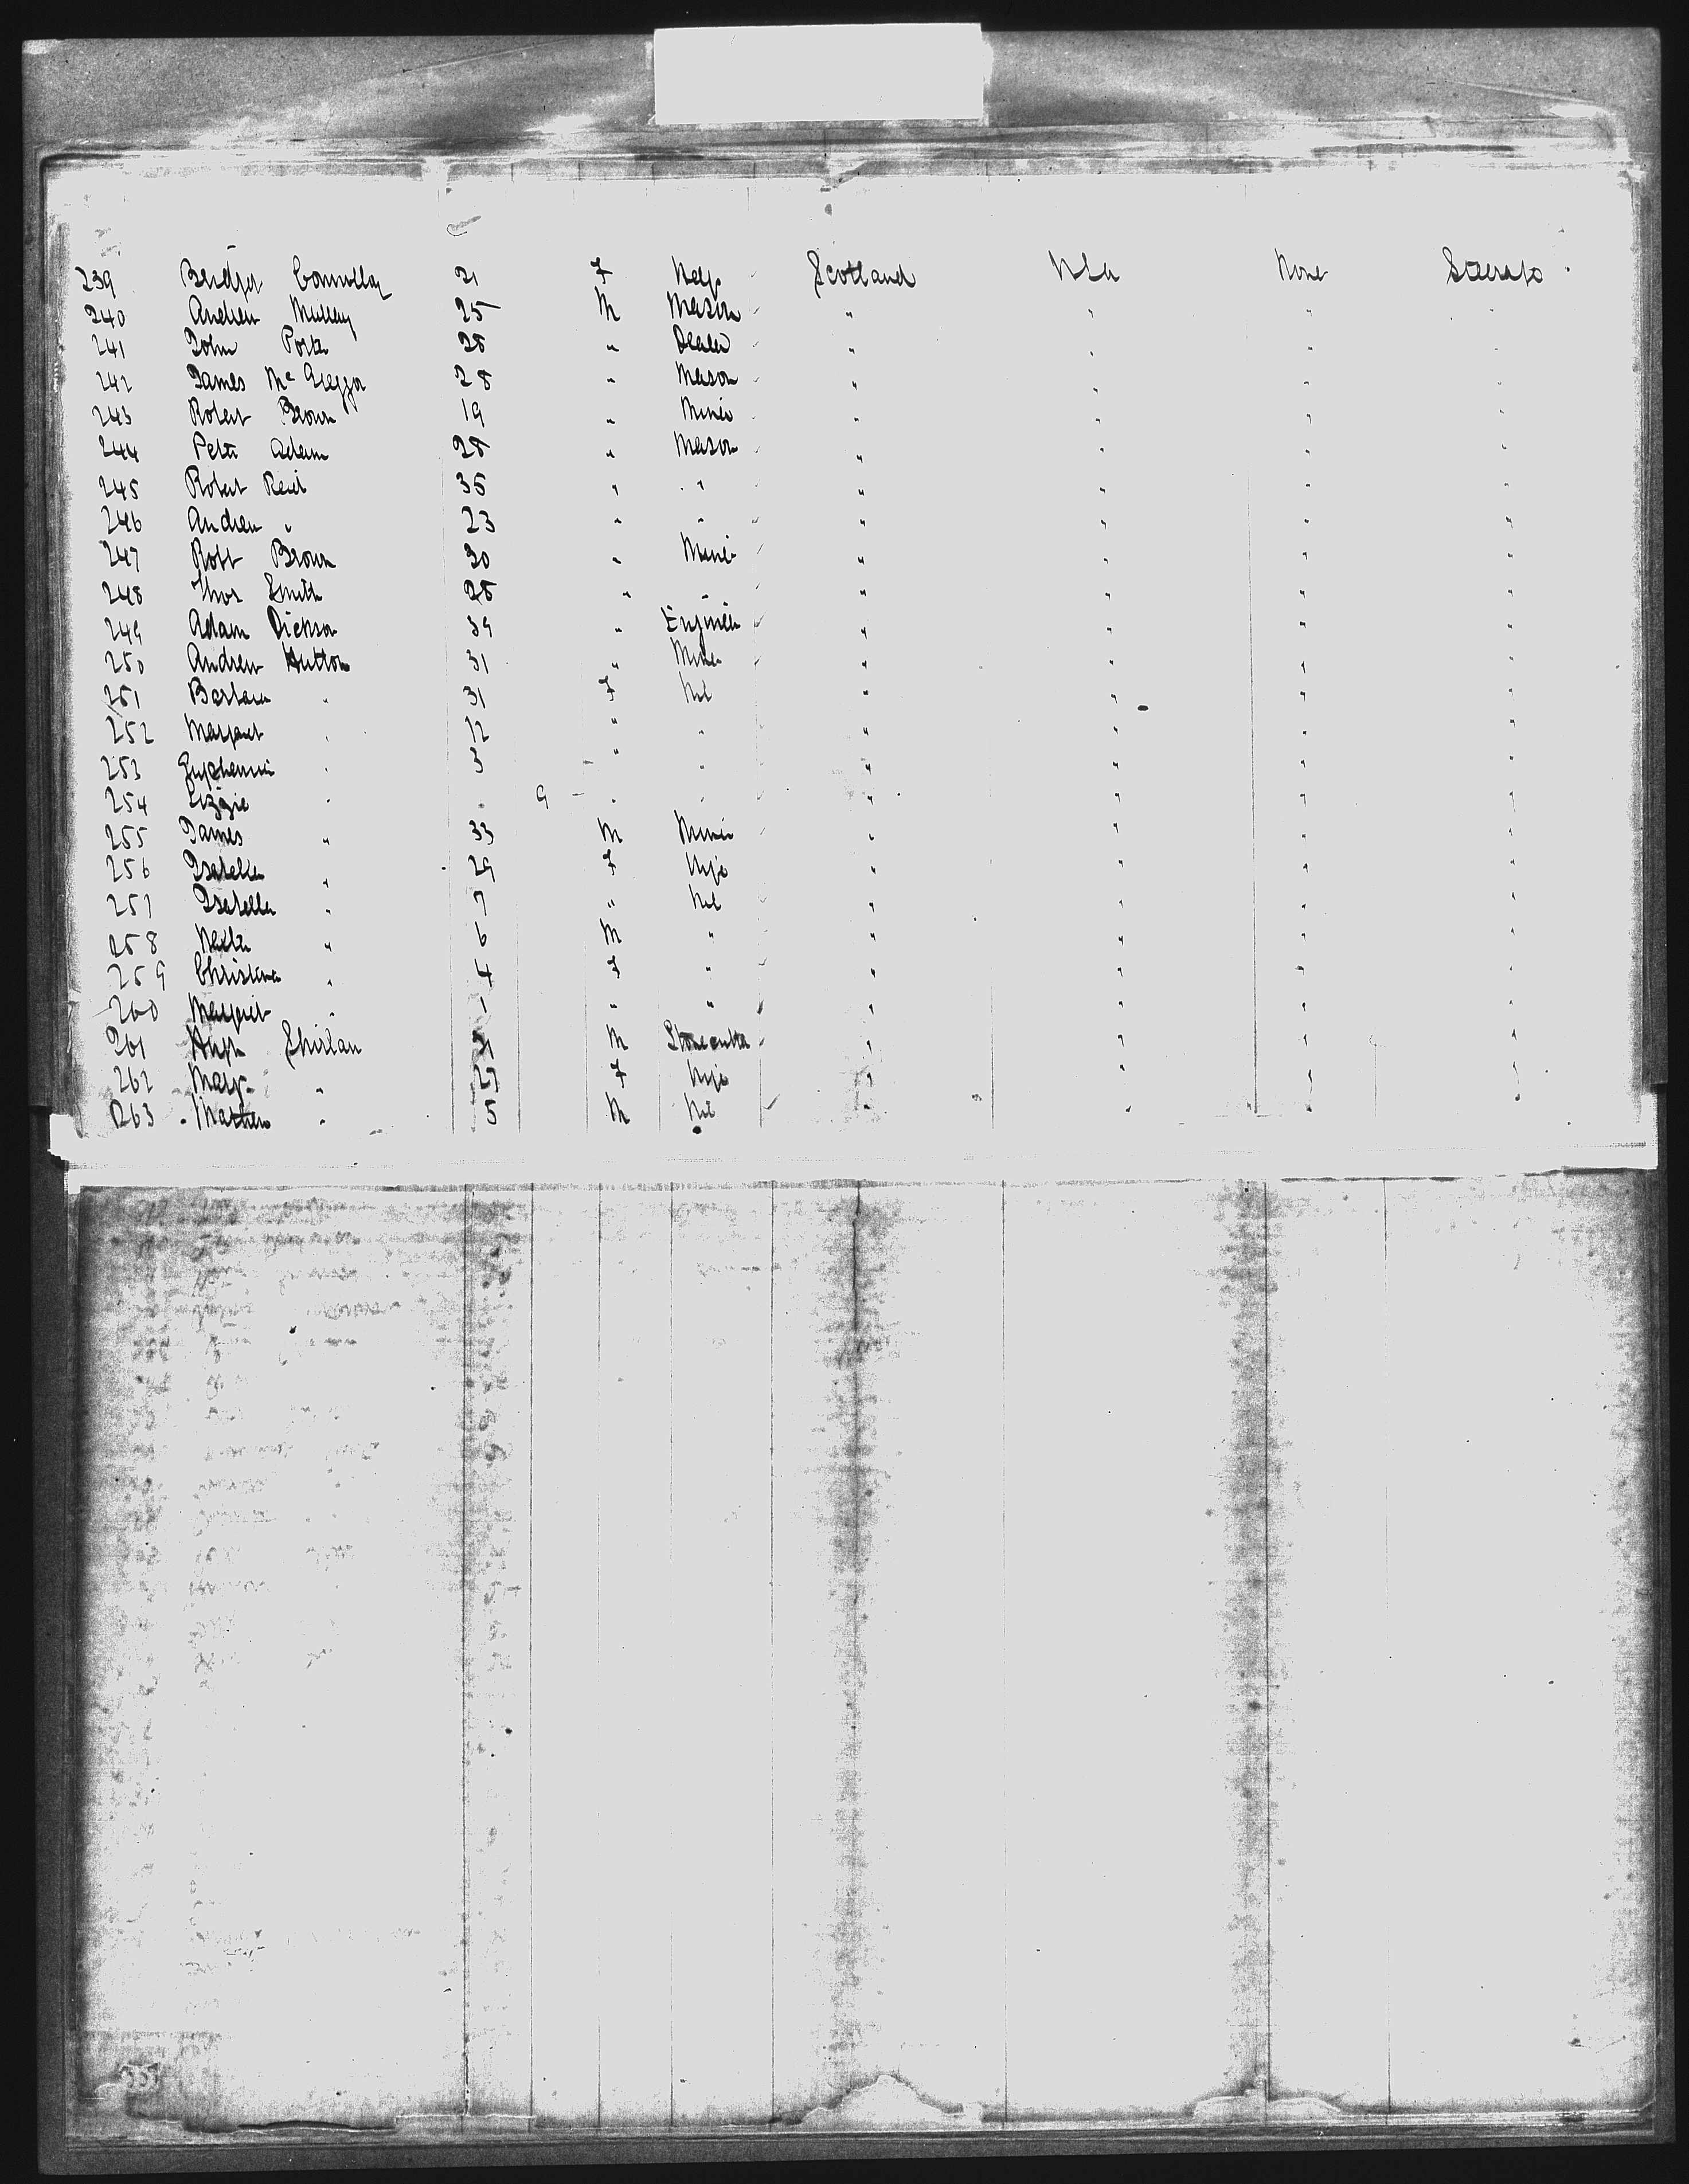 239 Bridget Connollay 21 F Help Scotland USA None Steerage
240 Andrew Mullay 25 M Mason " " " "
241 John Porter 28 " Dealer " " " "
242 James McGregor 28 " Mason " " " "
243 Robert Brown 19 " Miner " " " "
244 Peter Adam 28 " Mason " " " "
245 Robert Reid 35 " " " " " "
246 Andrew " 23 " " " " " "
247 Robt Brown 30 " Miner " " " "
248 Thos Smith 28 " " " " " "
249 Adam Dickson 39 " Engineer " " " "
250 Andrew Hutton 31 " Miner " " " "
251 Barbara " 31 F Nil " " " "
252 Margaret " " " " " " "
253 Euphemia " 3 " " " " " "
254 Lizzie " 9 " " " " " "
255 James " 33 M Miner " " " "
256 Isabella " 29 F Wife " " " "
257 Isabella " 7 " Nil " " " "
258 Walter " 6 M " " " " "
259 Christina " 4 F " " " " "
260 Margaret " 1 " " " " " "
261 Hugh Shirlaw M Stonecutter " " " "
262 Mary " 25 F Wife " " " "
263 Mathew " 5 M Nil " " " "